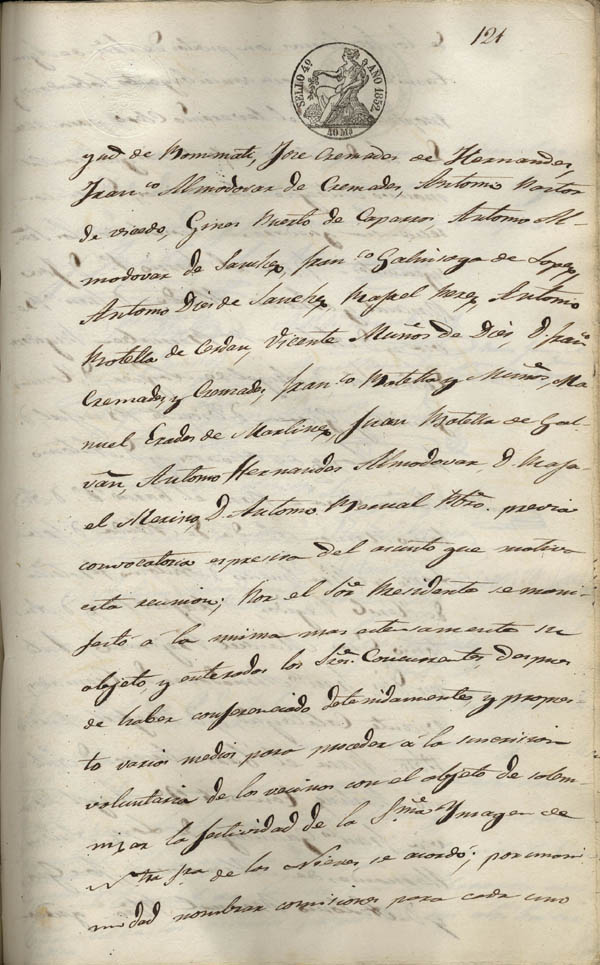 121
SELLO 4º AÑO 1852.
40 Ms
de Bommati, Jose Cremades de Hernandes,
Franco Almodovar de Cremades, Antonio
de vicedo, Gines Puerto de Caparros Antonio Al-
modovar de Sanchez, Franco Galinsoga de Lopez,
Antonio Dies de Sanchez, Rafael Perez, Antonio
Botella de Cerdan, Vicente Muños de Dies, D. Franco
Cremades y Cremades, Franco Botella y Muños, Ma
nuel Erades de Martinez, Juan Botella de Gal-
vañ, Antonio Hernandes Almodovar, D. Rafa-
el Merino, D. Antonio Pascual Pbro. previa
convocatoria espresiva del asunto que motiva
esta reunion; Por el Sor Presidente se mani-
festó á la misma mas estensamente su
objeto, y enterados los Sres. Concurrentes, despues
de haber conferenciado detenidamente y propues-
to varios medios para proceder á la suscricion
voluntaria de los vecinos con el objeto de solem-
nizar la festividad de la Sma Ymagen de
Ntra Sra de las Nieves, se acordó; por unani-
midad nombrar comisiones para cada uno